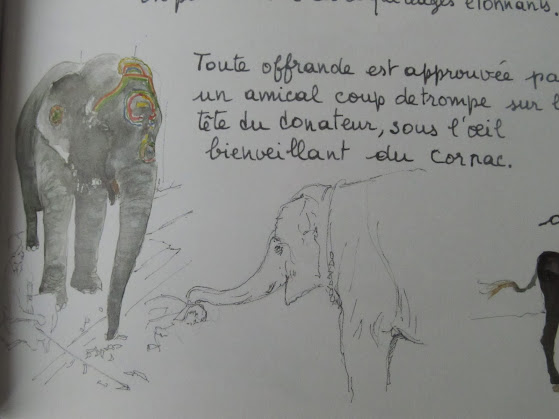 étonnants.
Toute offrande est approuvée pa
un amical coup de trompe sur l
tête du donateur, sous l'œil
bienveillant du cornac.